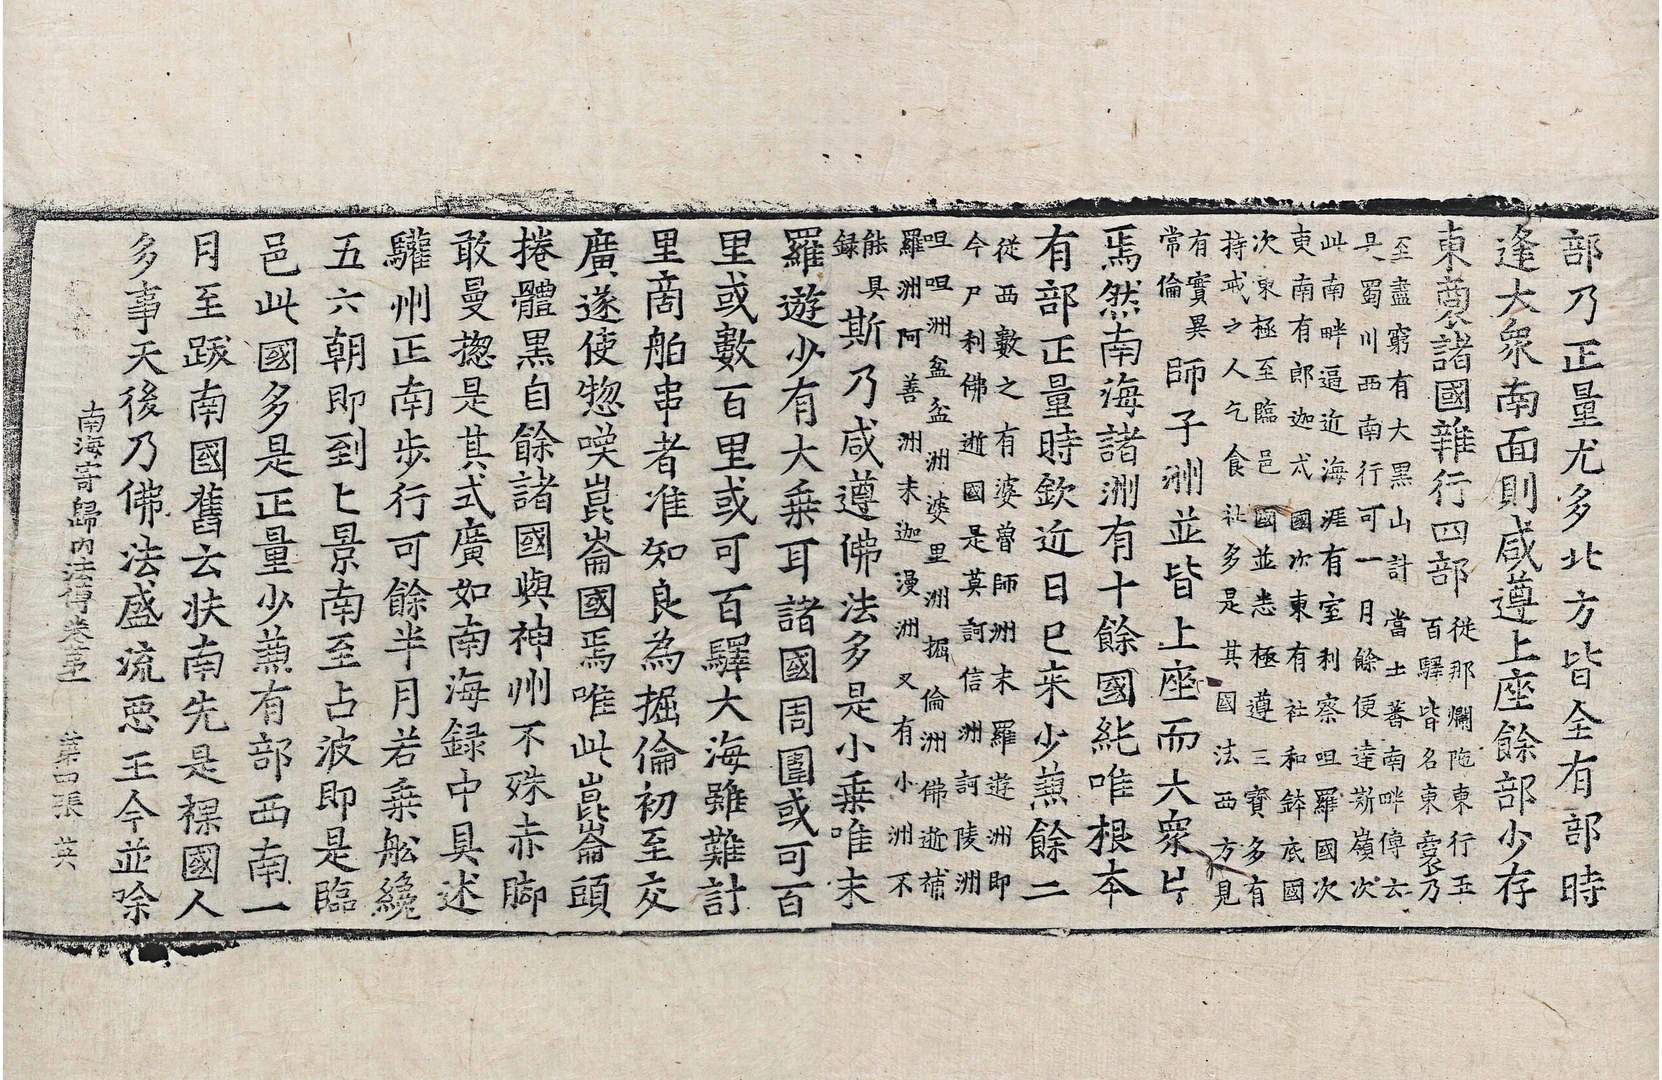 部乃正量尤多北方皆全有部時
逢大衆南面則咸遵上座餘部少存
東裔諸國雜行四部
從那爛陁東行五
百驛皆名東裔乃
至盡窮有大黒山計當土蕃南畔傳云
是蜀川西南行可一月餘便達斯嶺次
此南畔逼近海涯有室利察呾羅國次
東南有郎迦戍國次東有社和鉢底國
次東極至臨邑國並悉極遵三寶多有
持戒之人乞食杜多是其國法西方見
有實異
常倫
師子洲並皆上座而大衆片
焉然南海諸洲有十餘國純唯根夲
有部正量時欽近日已来少蒹餘二
從西數之有婆魯師洲末羅遊洲即
今尸利佛逝國是莫訶信洲訶陵洲
呾呾洲盆盆洲婆里洲掘倫洲佛逝補
羅洲阿善洲末迦漫洲又有小洲不
能具
録
斯乃咸遵佛法多是小乗唯末
羅遊少有大乗耳諸國周圍或可百
里或數百里或可百驛大海雖難計
里商舶串者准知良為掘倫初至交
廣遂使惣嘆崑崙國焉唯此崑崙頭
捲體黒自餘諸國與神州不殊赤脚
敢曼揔是其式廣如南海録中具述
驩州正南步行可餘半月若乗舩纔
五六朝即到匕景南至占波即是臨
邑此國多是正量少蒹有部西南一
月至跋南國舊云扶南先是裸國人
多事天後乃佛法盛流惡王今並除
南海寄歸内法傳卷第一　第四張　英